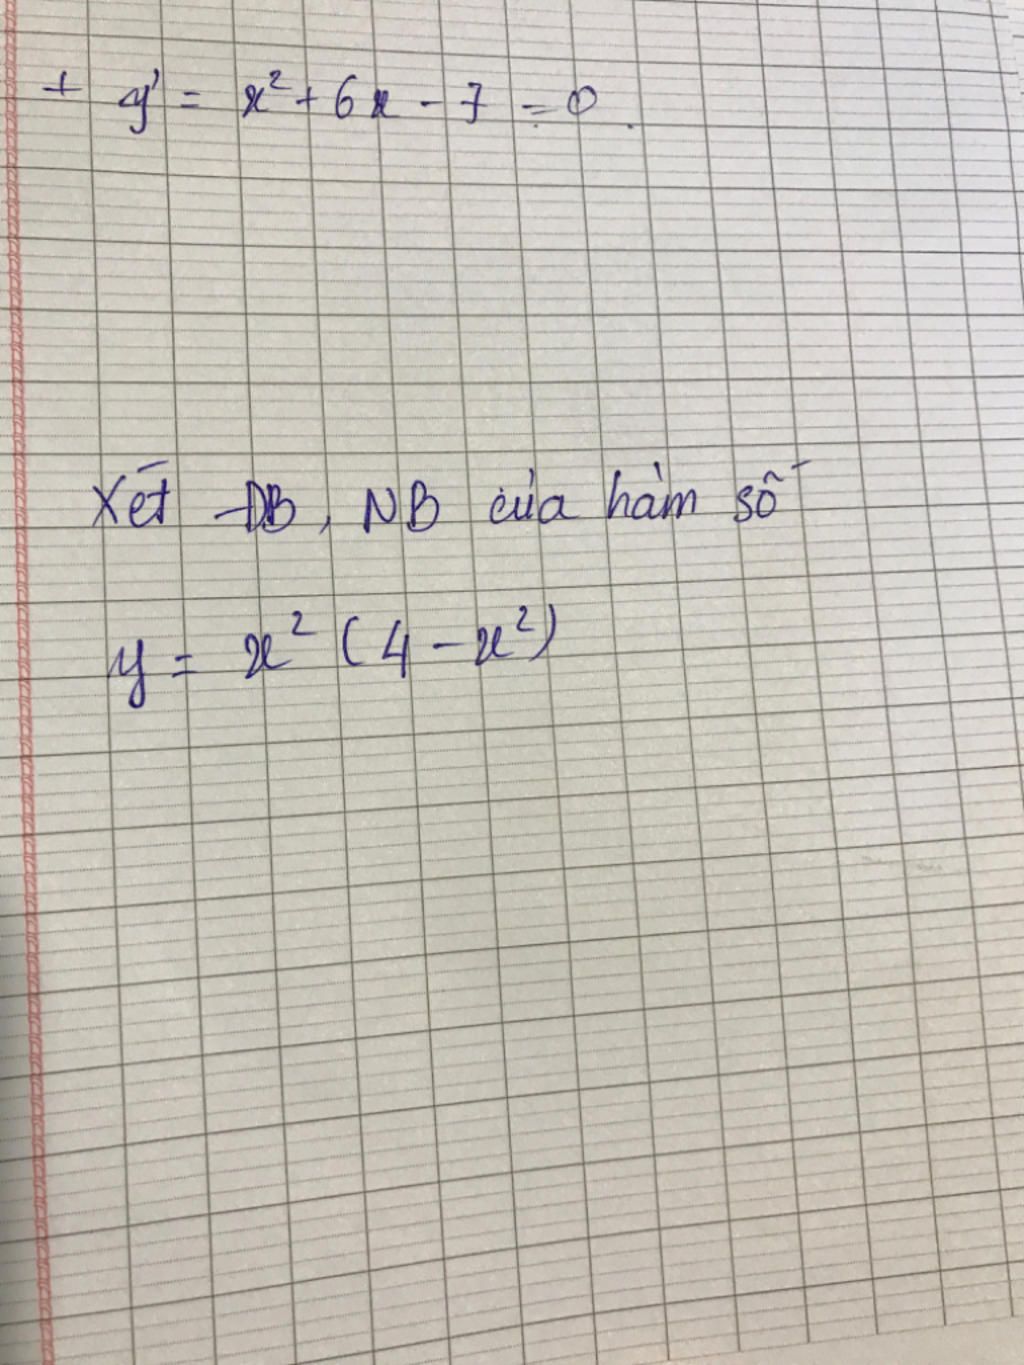 + y' = x² + 6x - 7 = 0.
Xét ĐB, NB của hàm số
y = x² (4 - x²)